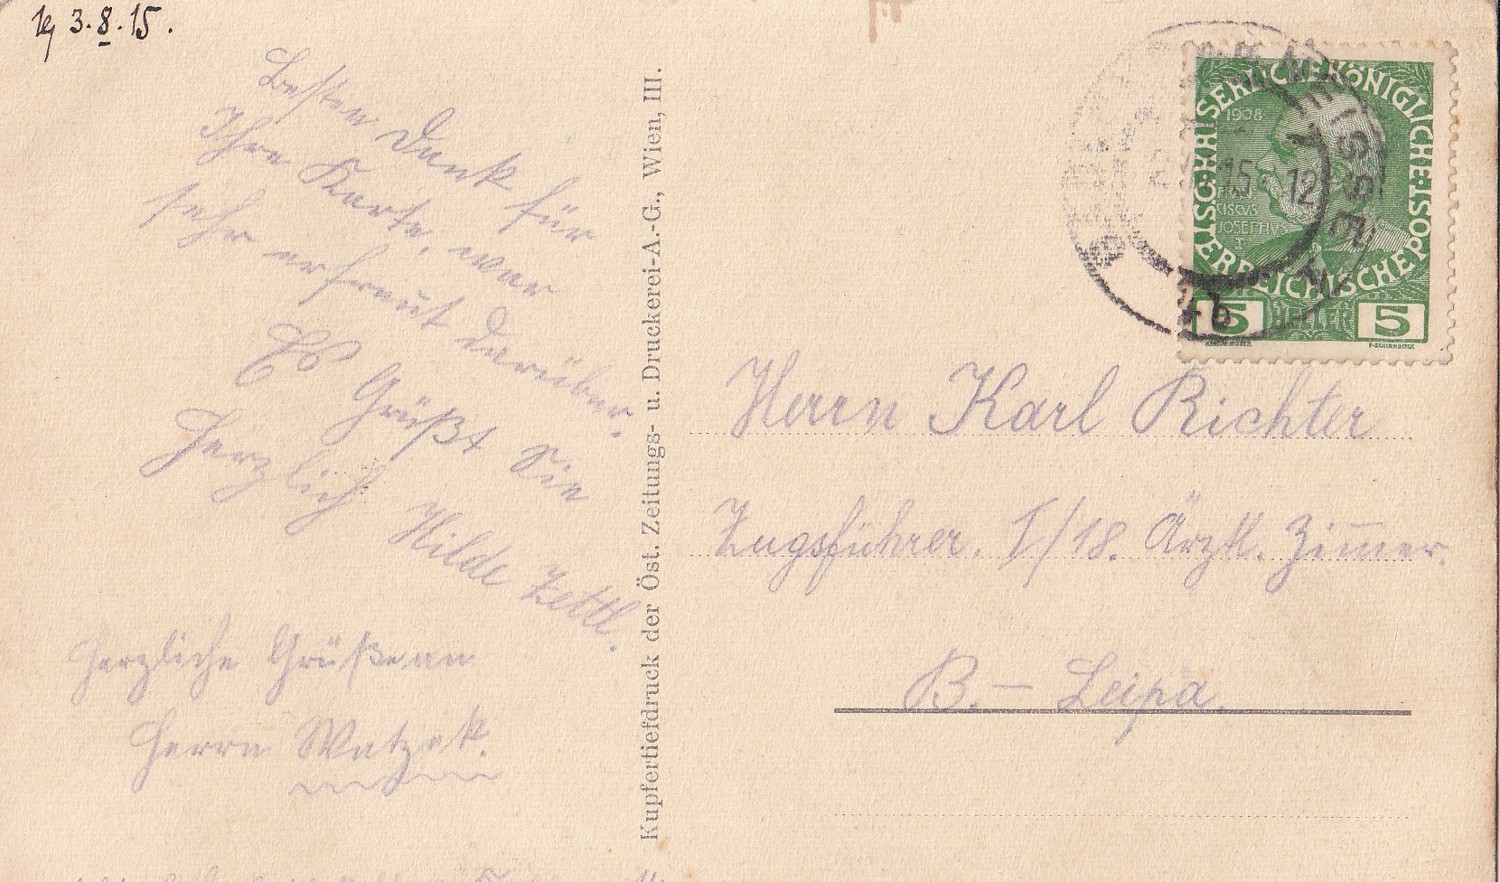 3.8.15.
Besten Dank für
Ihre Karte, war
sehr erfreut darüber.
Es Grüßt Sie
herzlich Hilde Zettl.
Herzliche Grüße an
Herrn Watzek.
Kupfertiefdruck der Öst. Zeitungs- u. Druckerei-A.-G., Wien, III.
KAISERLICHE KÖNIGLICHE
ÖSTERREICHISCHE POST
1908
FRANCISCUS
JOSEPHUS
I
5 HELLER 5
15 12
1b
Herrn Karl Richter
Zugsführer. I/18. Ärztl. Zimmer.
B.- Leipa.